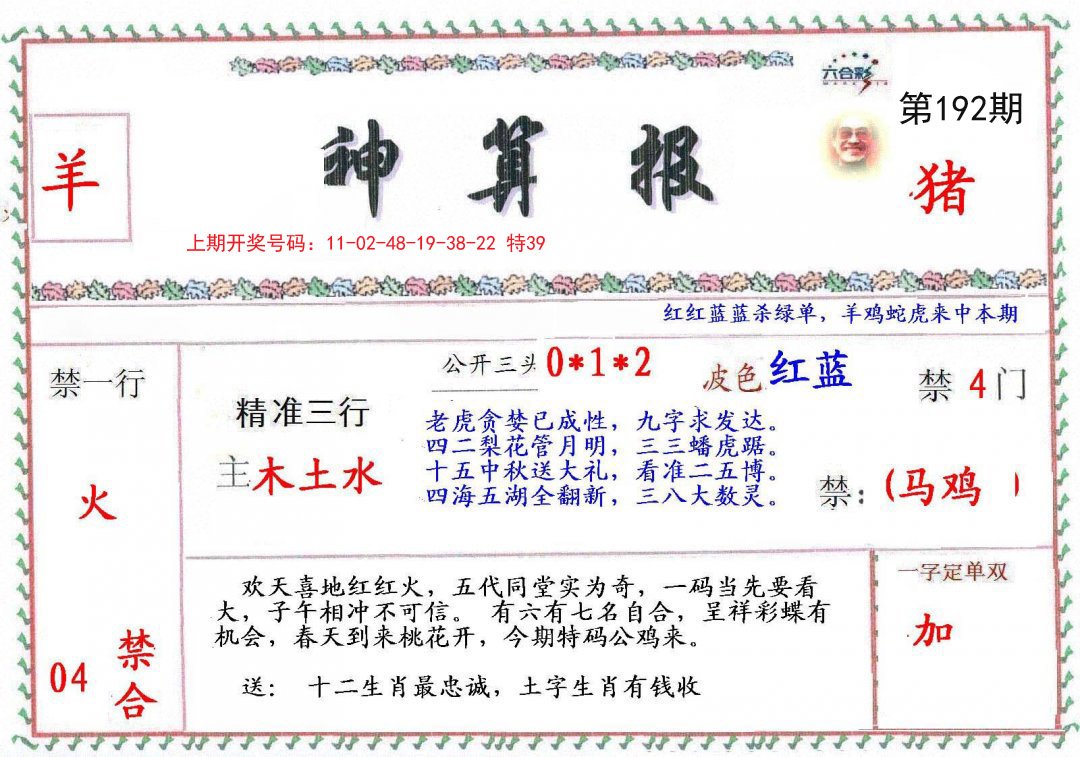 六合彩
第192期
羊
神算报
猪
上期开奖号码：11-02-48-19-38-22 特39
红红蓝蓝杀绿单，羊鸡蛇虎来中本期
禁一行
火
04 禁合
精准三行
主木土水
公开三头 0*1*2
波色 红蓝
禁 4 门
老虎贪婪已成性，九字求发达。
四二梨花管月明，三三蟠虎踞。
十五中秋送大礼，看准二五博。
四海五湖全翻新，三八大数灵。
禁：(马鸡 )
欢天喜地红红火，五代同堂实为奇，一码当先要看
大，子午相冲不可信。 有六有七名自合，呈祥彩蝶有
机会，春天到来桃花开，今期特码公鸡来。
送： 十二生肖最忠诚，土字生肖有钱收
一字定单双
加